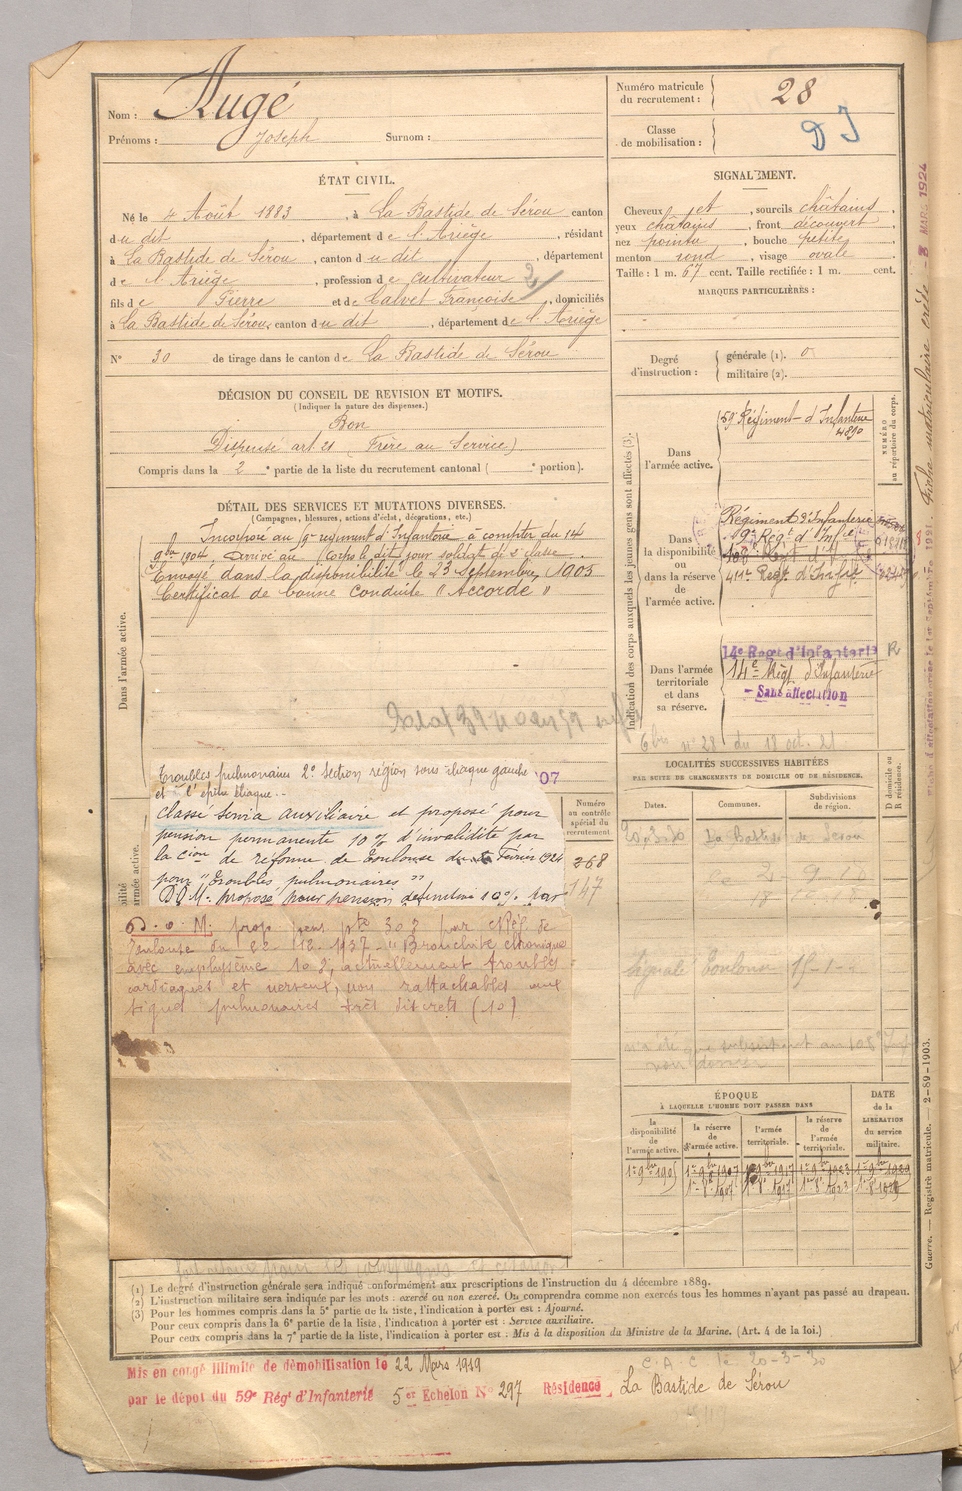 Nom : Augé
Prénoms : Joseph Surnom :
ÉTAT CIVIL.
Né le 4 Août 1883, à La Bastide de Sérou canton
du dit, département de l'Ariège, résidant
à La Bastide de Sérou, canton du dit, département
de l'Ariège, profession de cultivateur
fils de Pierre et de Calvet Françoise, domiciliés
à La Bastide de Sérou, canton du dit, département de l'Ariège
N° 30 de tirage dans le canton de La Bastide de Sérou
DÉCISION DU CONSEIL DE REVISION ET MOTIFS.
(Indiquer la nature des dispenses.)
Bon
Dispensé art 21 (Frère au Service)
Compris dans la 2e partie de la liste du recrutement cantonal ( e portion).
DÉTAIL DES SERVICES ET MUTATIONS DIVERSES.
(Campagnes, blessures, actions d'éclat, décorations, etc.)
Dans l'armée active.
Incorporé au 59e régiment d'Infanterie à compter du 14
9bre 1904. Arrivé au Corps le dit jour soldat de 2e classe.
Envoyé dans la disponibilité le 23 Septembre 1905
Certificat de bonne conduite "Accordé"
Troubles pulmonaires 2° section région sous iliaque gauche
et l'épine iliaque.-
07
Classé service auxiliaire et proposé pour
pension permanente 10 % d'invalidité par
la Cion de réforme de Toulouse du Février 1924
pour "Troubles pulmonaires"
D.O.M. proposé pour pension définitive 10 % par
D.O.M. prop pens pte 30% par CRéf. de
Toulouse du 22 12. 1937 - "Bronchite chronique
avec emphysème 10%, actuellement troubles
cardiaques et nerveux, non rattachables aux
signes pulmonaires très discrets (10)
Numéro
au contrôle
spécial du
recrutement.
268
147
Numéro matricule
du recrutement : 28
Classe
de mobilisation :
DJ
SIGNALEMENT.
Cheveux et, sourcils châtains,
yeux châtains, front découvert
nez pointu, bouche petite,
menton rond, visage ovale
Taille : 1 m. 67 cent. Taille rectifiée : 1 m. cent.
MARQUES PARTICULIÈRES :
Degré
d'instruction :
générale (1). 0
militaire (2).
Indication des corps auxquels les jeunes gens sont affectés (3).
NUMÉRO
au répertoire du corps.
Dans
l'armée active.
59e Régiment d'Infanterie
4890
Dans
la disponibilité
ou
dans la réserve
de
l'armée active.
Régiment d'Infanterie
59e Régt d'Infie
411e Régt d'Infie
Dans l'armée
territoriale
et dans
sa réserve.
14e Regt d'Infanterie R
14e Régt d'Infanterie
- Sans affectation
6 bis n° 28 du 18 oct. 21
LOCALITÉS SUCCESSIVES HABITÉES
PAR SUITE DE CHANGEMENTS DE DOMICILE OU DE RÉSIDENCE.
Dates. Communes. Subdivisions
de région.
D domicile ou
R résidence.
20.3.30 La Bastide de Sérou
Signalé Toulouse 15-1-
ÉPOQUE
À LAQUELLE L'HOMME DOIT PASSER DANS
la
disponibilité
de
l'armée active.
la réserve
de
l'armée active.
l'armée
territoriale.
la réserve
de
l'armée
territoriale.
DATE
de la
LIBÉRATION
du service
militaire.
1er 9bre 1905 1er 9bre 1907 1er 9bre 1917 1er 9bre 1923 1er 9bre 1929
1er 8bre 1907 1er 8bre 1917 1er 8bre 1923 1er 8bre 1929
Guerre. — Registre matricule. — 2-89-1903.
(1) Le degré d'instruction générale sera indiqué conformément aux prescriptions de l'instruction du 4 décembre 1889.
(2) L'instruction militaire sera indiquée par les mots : exercé ou non exercé. On comprendra comme non exercés tous les hommes n'ayant pas passé au drapeau.
(3) Pour les hommes compris dans la 5e partie de la liste, l'indication à porter est : Ajourné.
Pour ceux compris dans la 6e partie de la liste, l'indication à porter est : Service auxiliaire.
Pour ceux compris dans la 7e partie de la liste, l'indication à porter est : Mis à la disposition du Ministre de la Marine. (Art. 4 de la loi.)
C.A.C le 20-3-30
Mis en congé illimité de démobilisation le 22 Mars 1919
par le dépôt du 59e Régt d'Infanterie 5er Echelon N° 297 Résidence La Bastide de Sérou